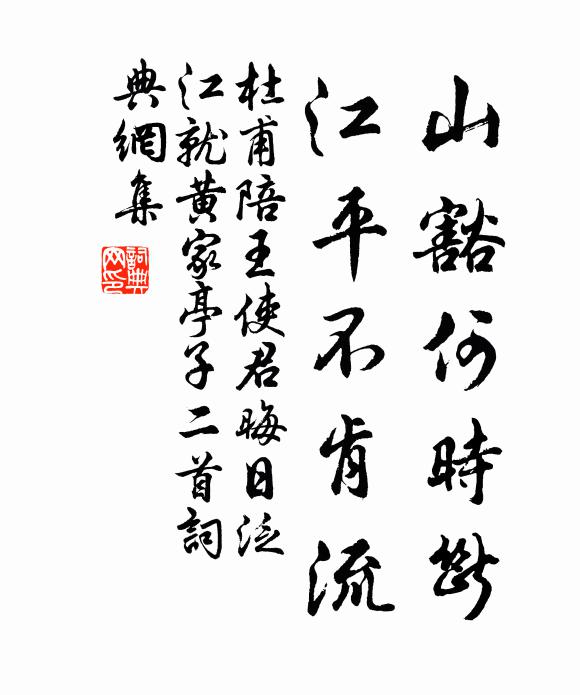 山豁何時斷
江平不肯流
杜甫陪王使君晦日泛
江就黄家亭子二首詞
典網集
詞典
网印